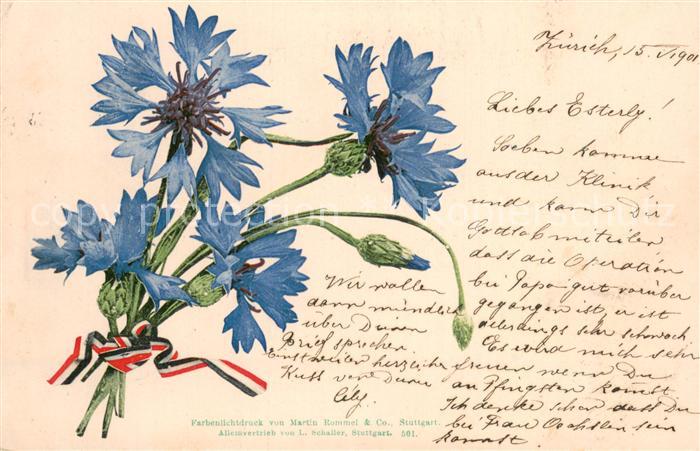 Zürich, 15. V 1901
Liebes Esterly!
Soeben komme
aus der Klinik
und kann Dir
Gottlob mitteilen
dass die Operation
bei Papa gut vorüber
gegangen ist, er ist
allerdings sehr schwach
Es wird mich sehr
freuen wenn Du
an Pfingsten kommst
Ich denke schon dass Du
bei Frau Oechslin sein
kannst
Wir wollen
dann mündlich
über Deinen
Brief sprechen
Einstweilen herzlicher
Kuss von Deiner
Cily.
Farbenlichtdruck von Martin Rommel & Co., Stuttgart.
Alleinvertrieb von L. Schaller, Stuttgart. 501.
copyright protected * Kopierschutz